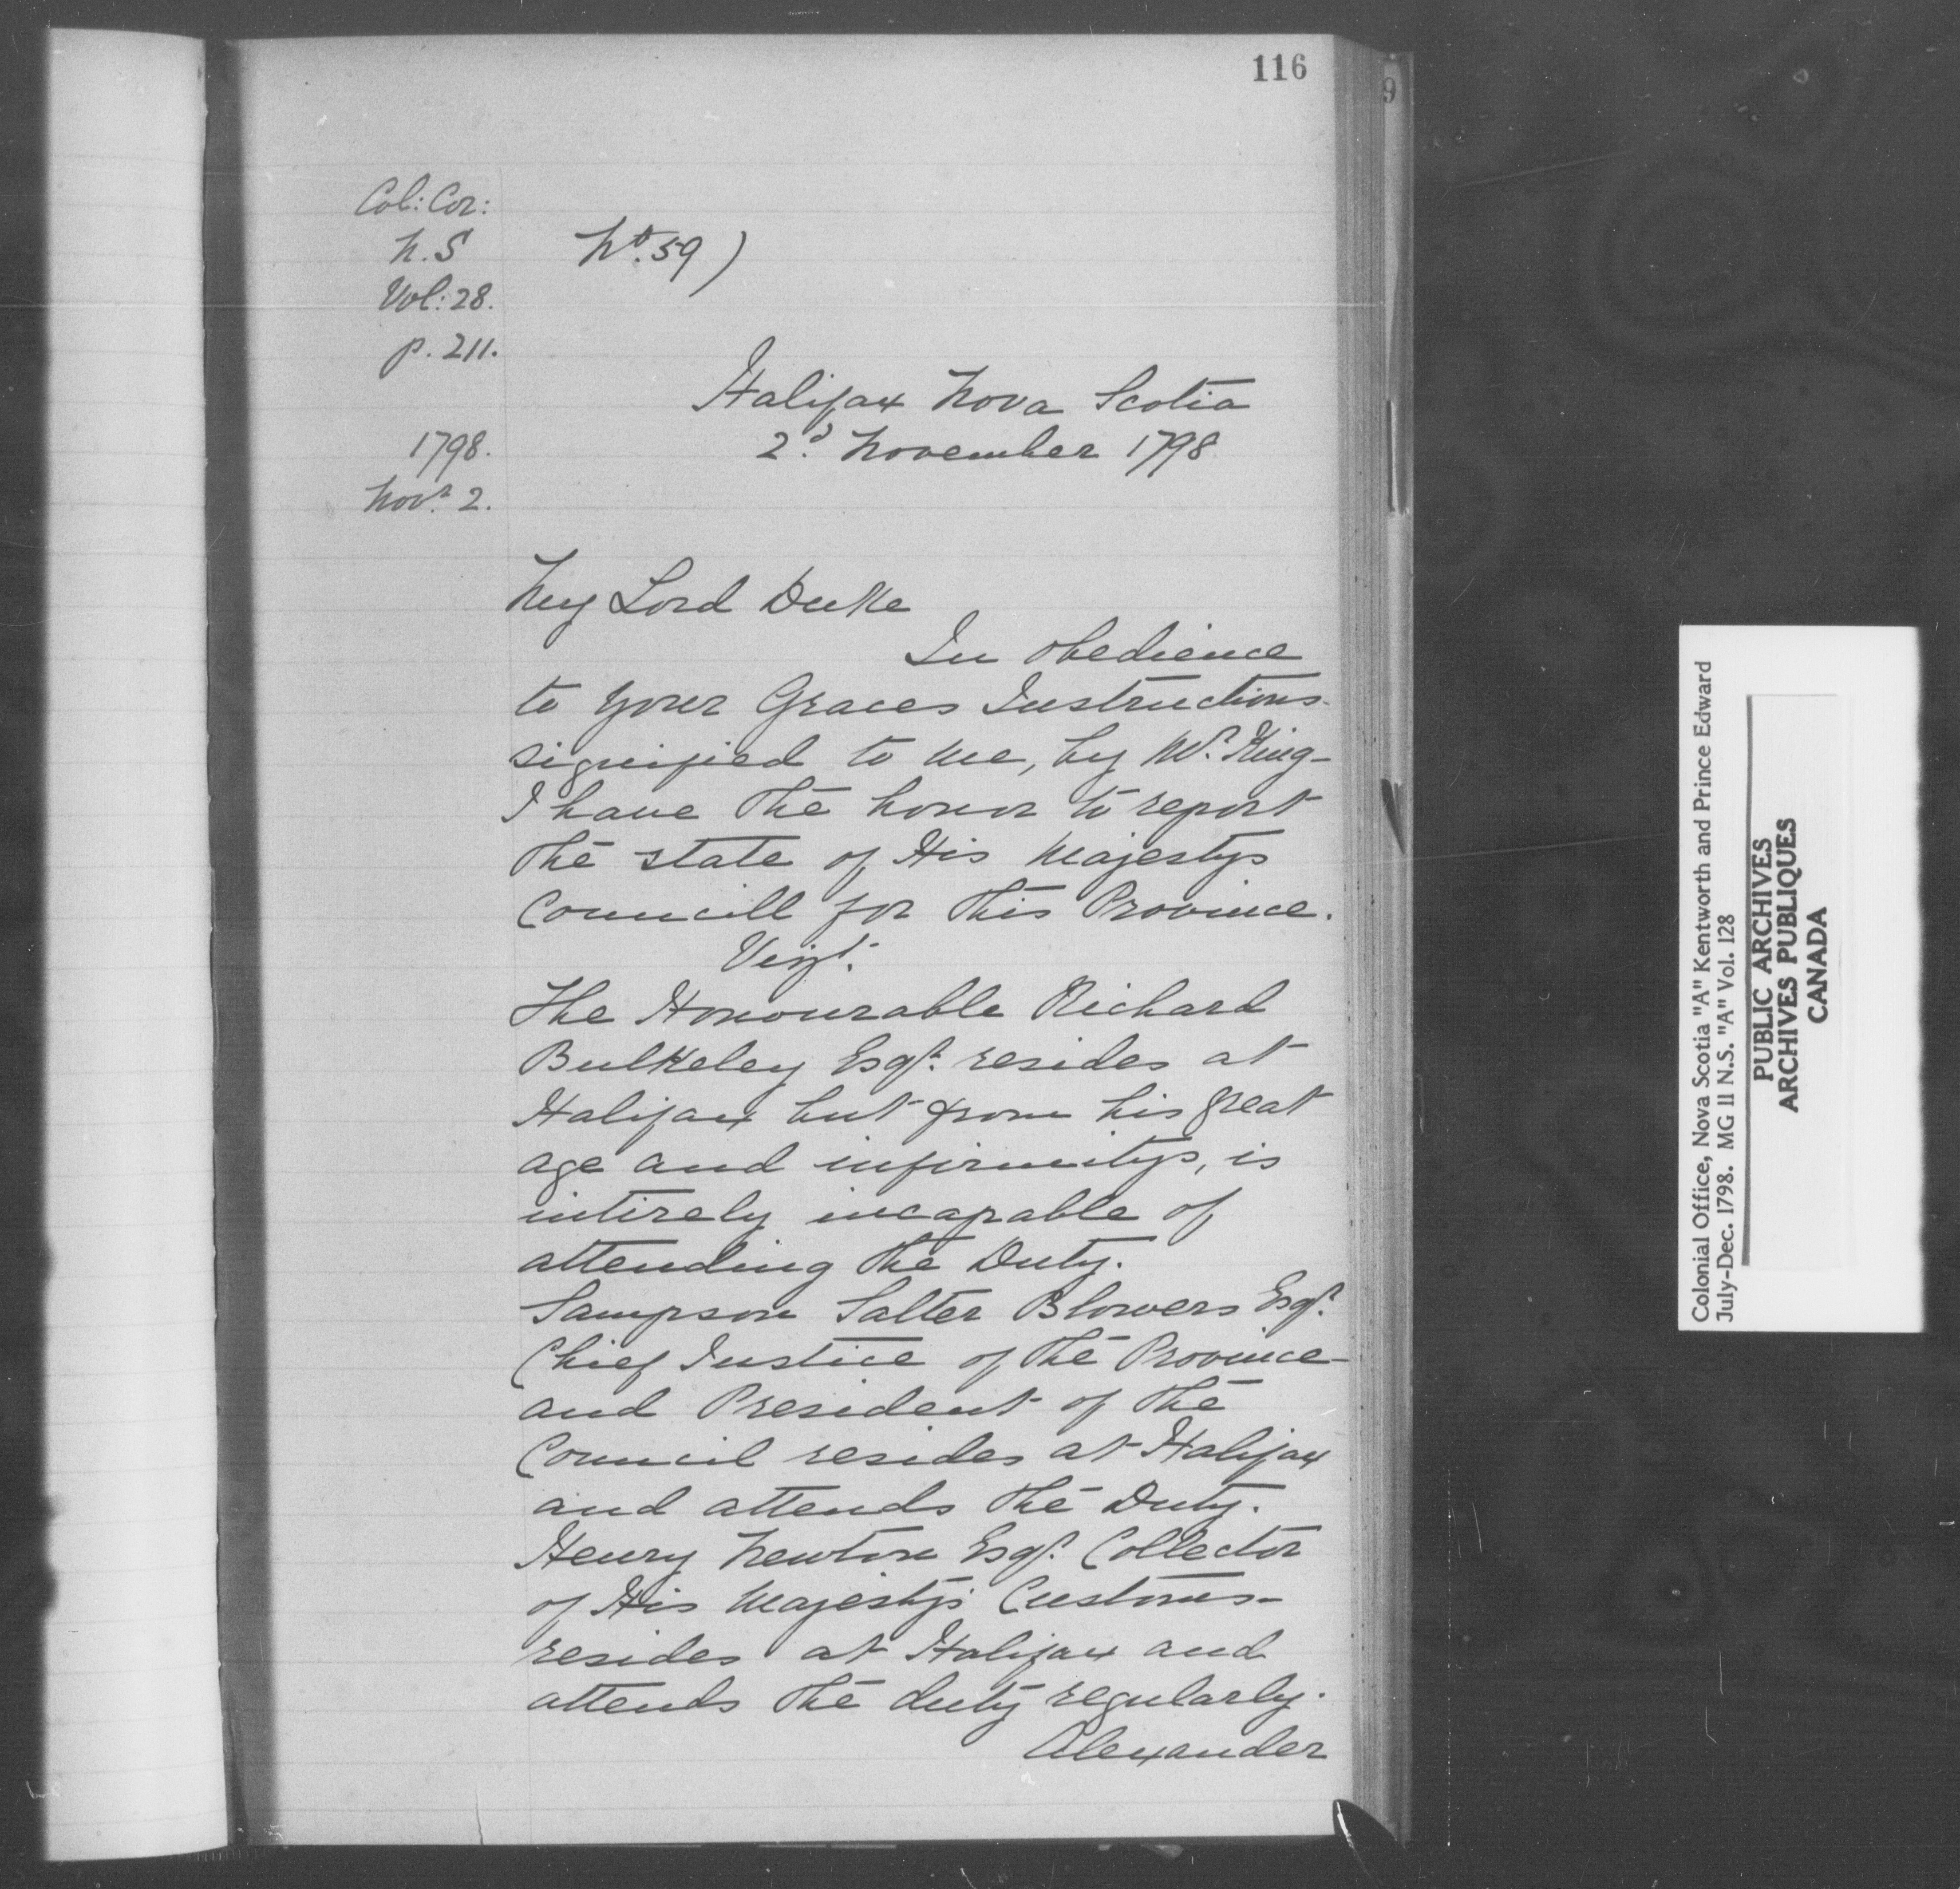 116
9
Col: Cor:
N.S
Vol: 28.
p. 211.
No. 59)
Halifax Nova Scotia
2d. November 1798
1798.
Novr. 2.
My Lord Duke
In obedience
to your Graces Instructions
signified to me, by Mr. King-
I have the honor to report
the state of His Majestys
Councill for this Province.
Vizt.
The Honourable Richard
Bulkeley Esqr. resides at
Halifax but from his great
age and infirmitys, is
intirely incapable of
attending the Duty.
Sampson Salter Blowers Esqr.
Chief Justice of the Province-
and President of the
Council resides at Halifax
and attends the Duty.
Henry Newton Esqr. Collector
of His Majestys Customs-
resides at Halifax and
attends the duty regularly.
Alexander
Colonial Office, Nova Scotia "A" Kentworth and Prince Edward
July-Dec. 1798. MG 11 N.S. "A" Vol. 128
PUBLIC ARCHIVES
ARCHIVES PUBLIQUES
CANADA